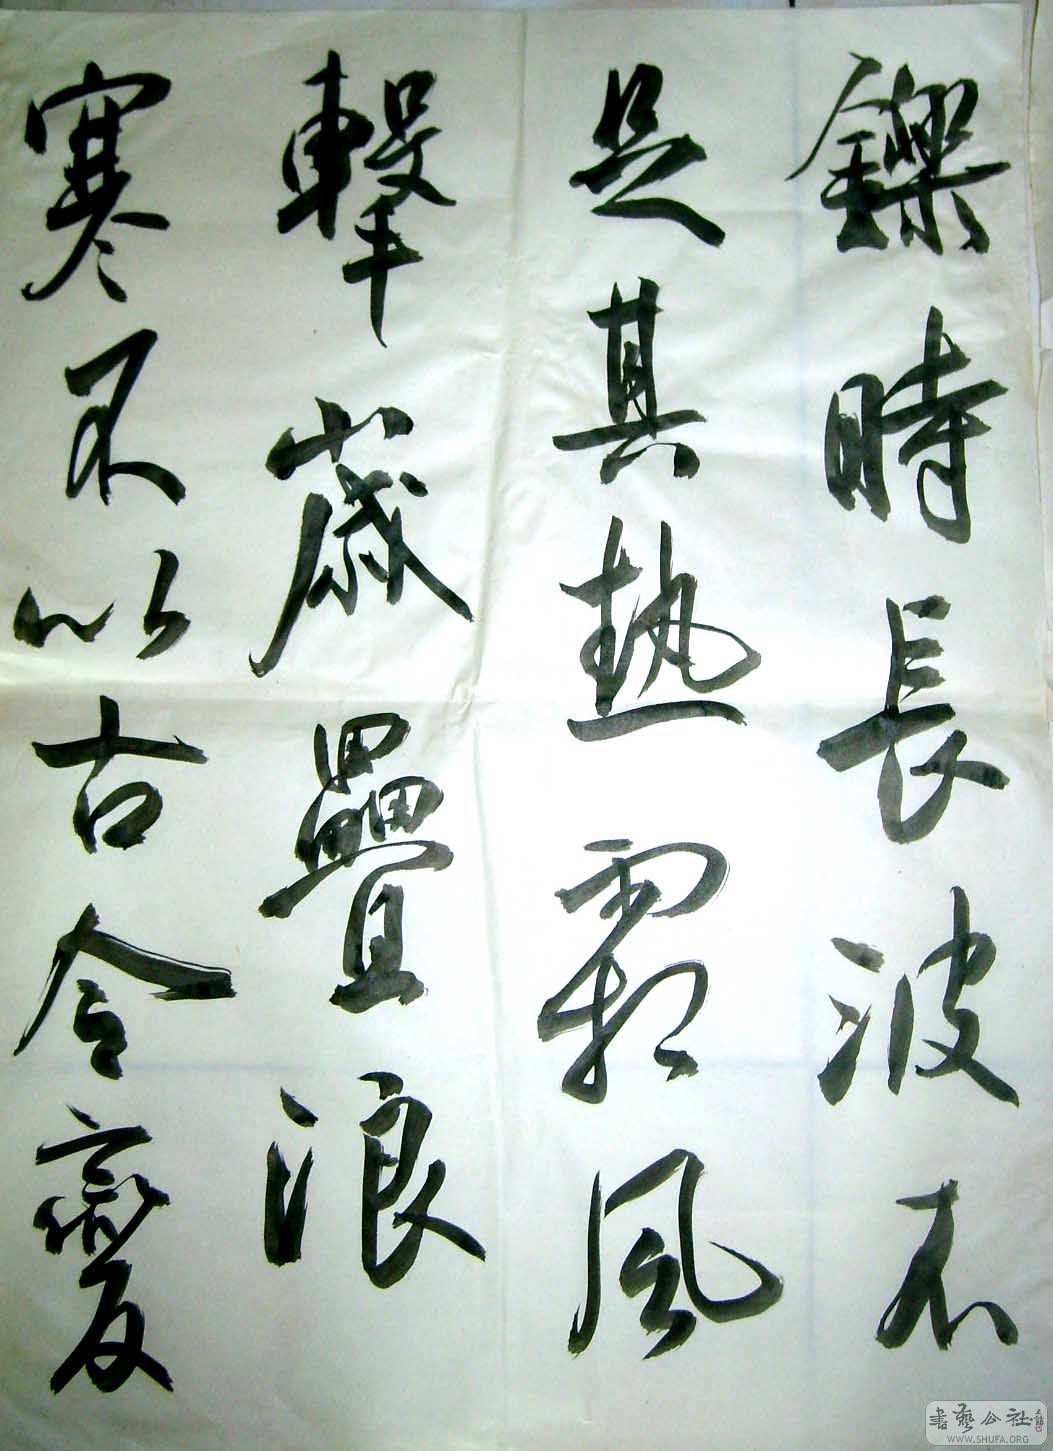 鑠時長波不
足其熱霜風
擊歲疊浪
寒不以古今變
書藝公社
WWW.SHUFA.ORG